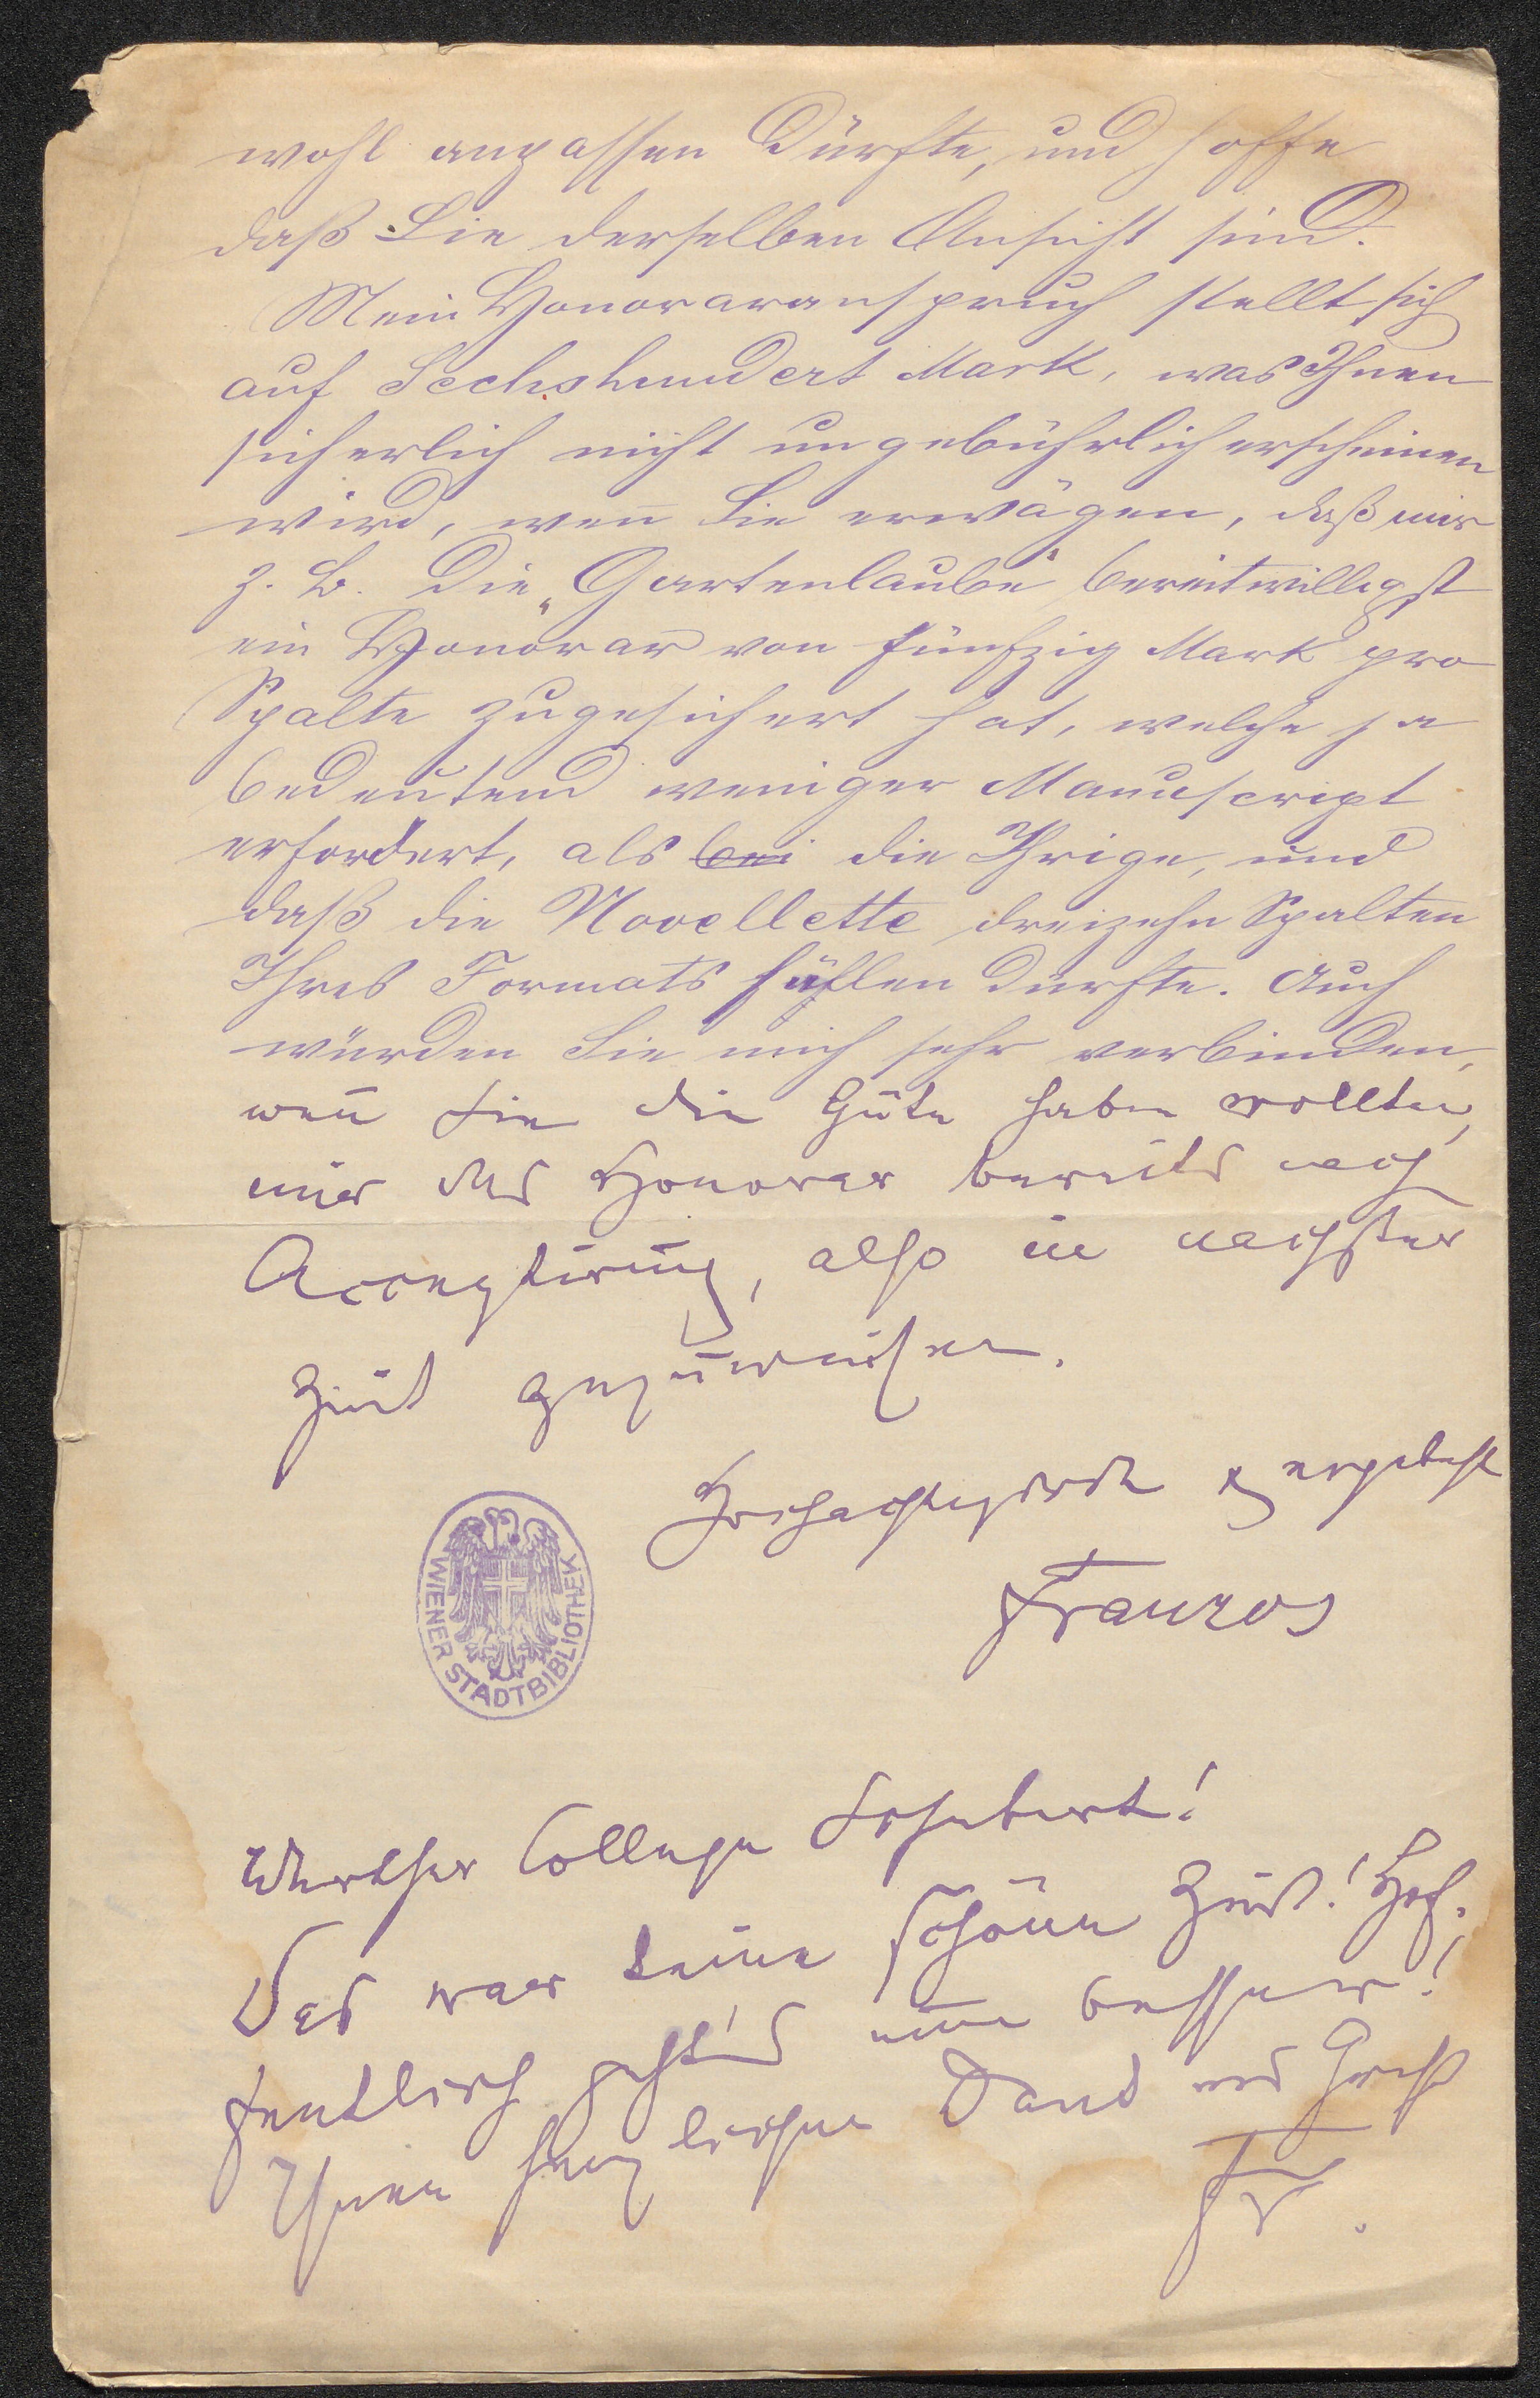 wohl anpassen dürfte, und hoffe
daß Sie derselben Ansicht sind.
Mein Honoraranspruch stellt sich
auf Sechshundert Mark, was Ihnen
sicherlich nicht ungebührlich erscheinen
wird, wen̄ Sie erwägen, daß mir
z. B. die „Gartenlaube“ bereitwilligst
ein Honorar von fünfzig Mark pro
Spalte zugesichert hat, welche ja
bedeutend weniger Manuscript
erfordert, als bei die Ihrige, und
daß die Novellette dreizehn Spalten
Ihres Formats füllen dürfte. Auch
würden Sie mich sehr verbinden,
wen̄ Sie die Güte haben wollten,
mir das Honorar bereits nach
Acceptirung, also in nächster
Zeit anzuweisen.
Hochachtungsvoll & ergebenst
Franzos
WIENER STADTBIBLIOTHEK
Werther College Schubert!
Das war keine schöne Zeit! Hof-
fentlich geht's nun besser!
Ihnen herzlichen Dank und Gruß
Fr.